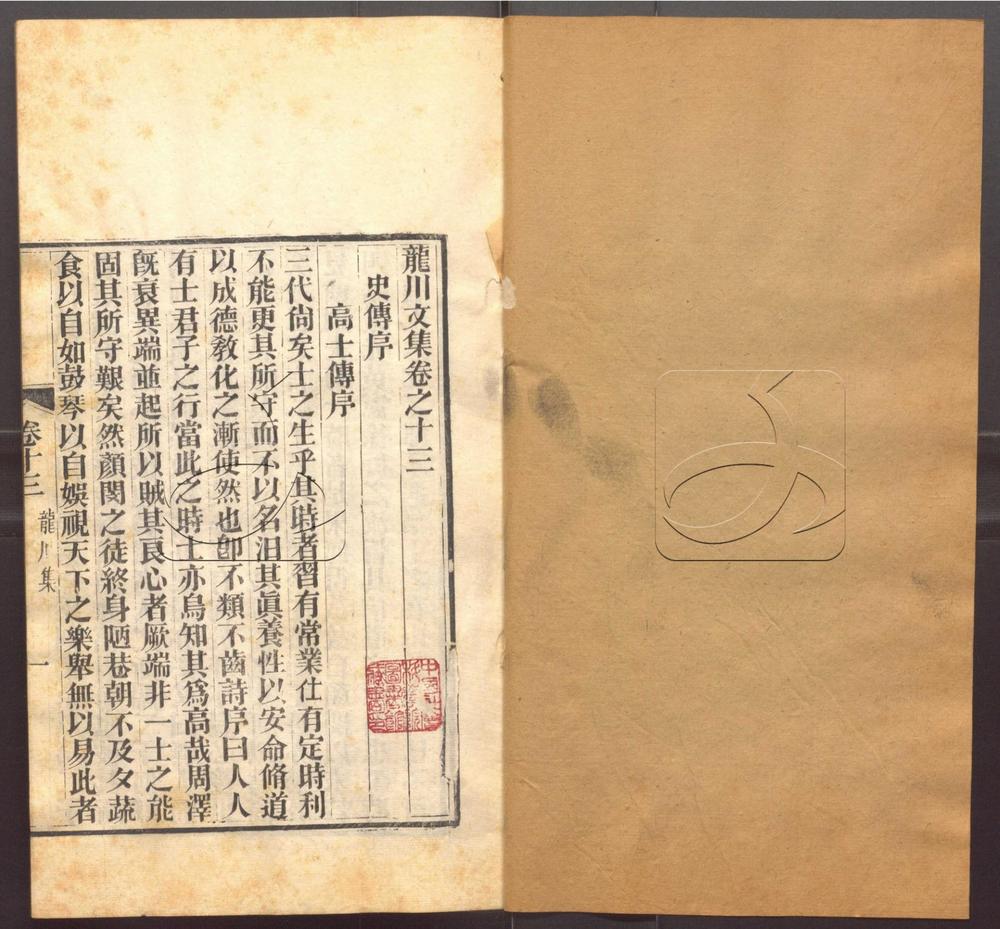 龍川文集卷之十三
史傳序
高士傳序
三代尙矣士之生乎其時者習有常業仕有定時利
不能更其所守而不以名汨其眞養性以安命脩道
以成德敎化之漸使然也卽不類不齒詩序曰人人
有士君子之行當此之時士亦烏知其爲高哉周澤
旣衰異端並起所以賊其良心者厥端非一士之能
固其所守艱矣然顏閔之徒終身陋巷朝不及夕蔬
食以自如鼓琴以自娛視天下之樂舉無以易此者
卷十三
龍川集
一